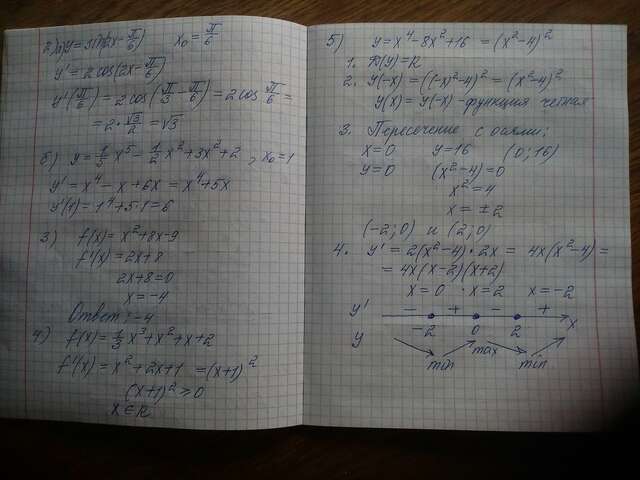 2) а) y = sin(2x - π/6) x₀ = π/6
y' = 2cos(2x - π/6)
y'(π/6) = 2cos(π/3 - π/6) = 2cos π/6 =
= 2 · √3/2 = √3
б) y = 1/5 x⁵ - 1/2 x² + 3x² + 2, x₀ = 1
y' = x⁴ - x + 6x = x⁴ + 5x
y'(1) = 1⁴ + 5·1 = 6
3) f(x) = x² + 8x - 9
f'(x) = 2x + 8
2x + 8 = 0
x = -4
Ответ: -4
4) f(x) = 1/3 x³ + x² + x + 2
f'(x) = x² + 2x + 1 = (x+1)²
(x+1)² ≥ 0
x ∈ R
5) y = x⁴ - 8x² + 16 = (x² - 4)²
1. D(y) = R
2. y(-x) = ((-x)² - 4)² = (x² - 4)²
y(x) = y(-x) - функция четная
3. Пересечение с осями:
x = 0 y = 16 (0; 16)
y = 0 (x² - 4) = 0
x² = 4
x = ±2
(-2; 0) и (2; 0)
4. y' = 2(x² - 4) · 2x = 4x(x² - 4) =
= 4x(x - 2)(x + 2)
x = 0 x = 2 x = -2
y' - + - +
-2 0 2 x
y
min max min